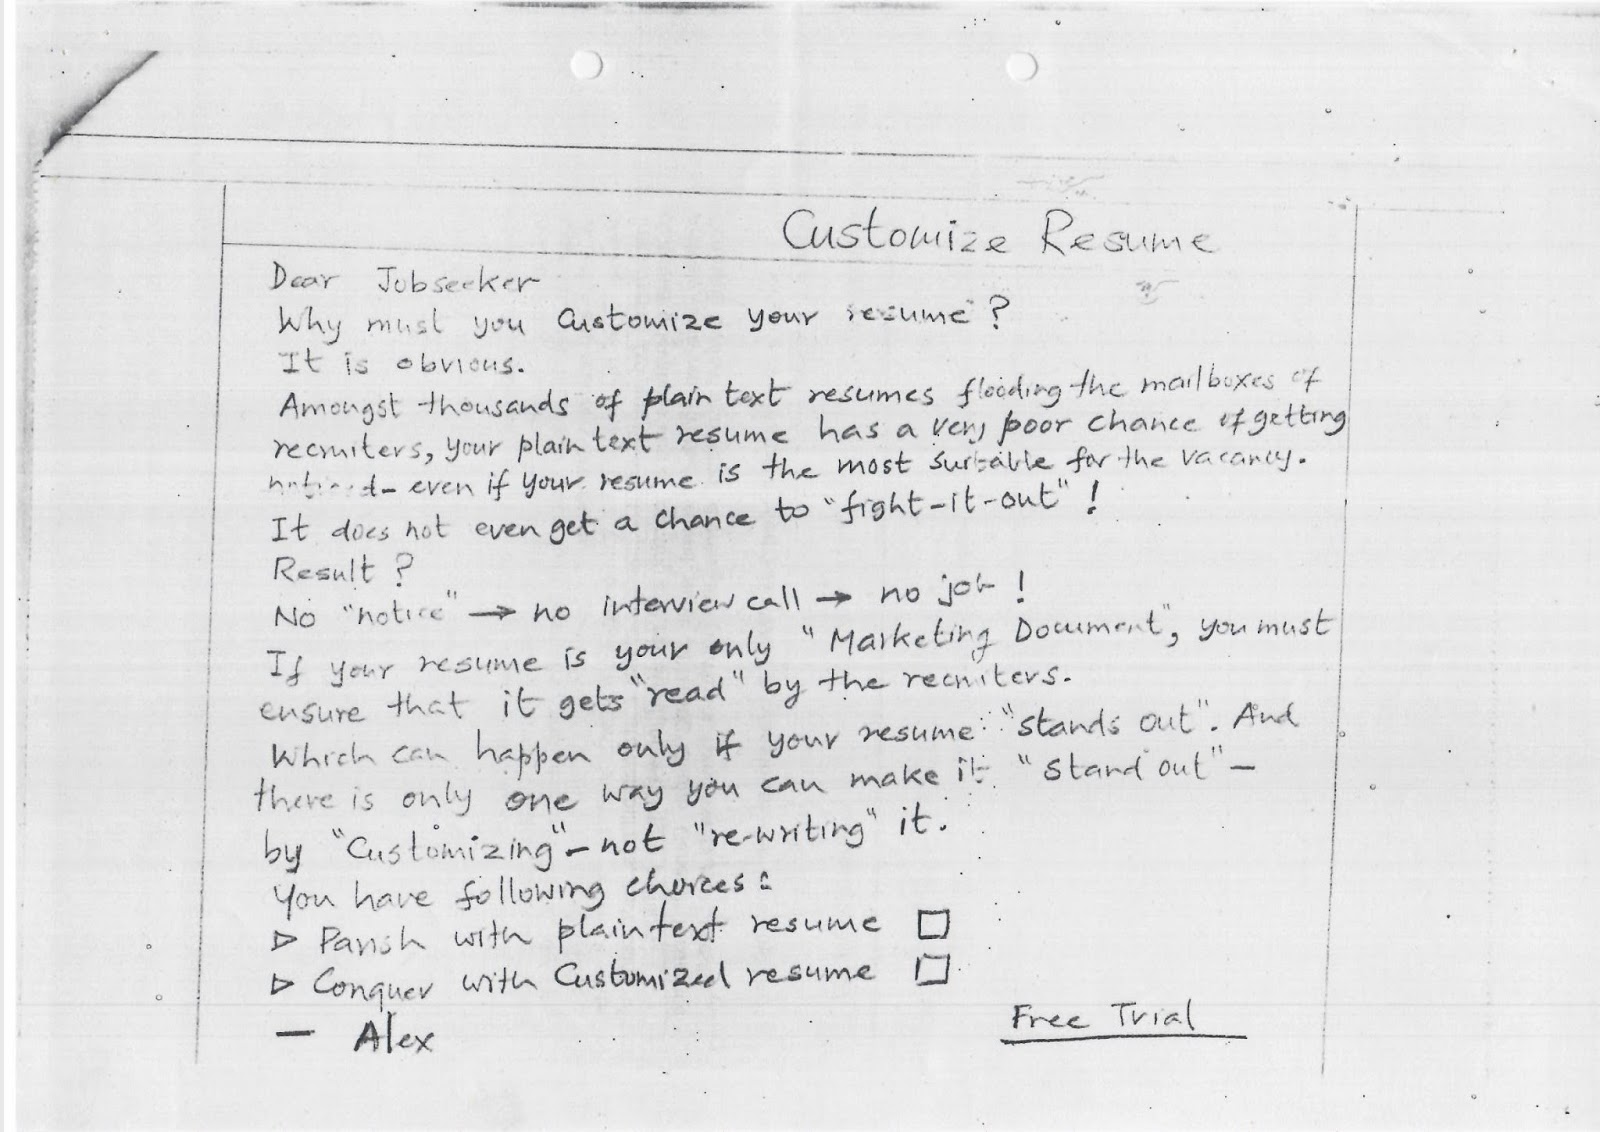 Customize Resume
Dear Jobseeker
Why must you Customize your resume"?
It is obvious.
Amongst thousands of plain text resumes flooding the mailboxes of
recruiters, your plain text resume has a very poor chance of getting
noticed - even if your resume is the most suitable for the vacancy.
It does not even get a chance to "fight-it-out"!
Result?
No "notice" → no interview call → no job!
If your resume is your only "Marketing Document", you must
ensure that it gets "read" by the recruiters.
Which can happen only if your resume "stands out". And
there is only one way you can make it "Stand out" -
by "Customizing" - not "re-writing" it.
You have following choices:
▷ Parish with plain text resume ☐
▷ Conquer with Customized resume ☐
— Alex
Free Trial